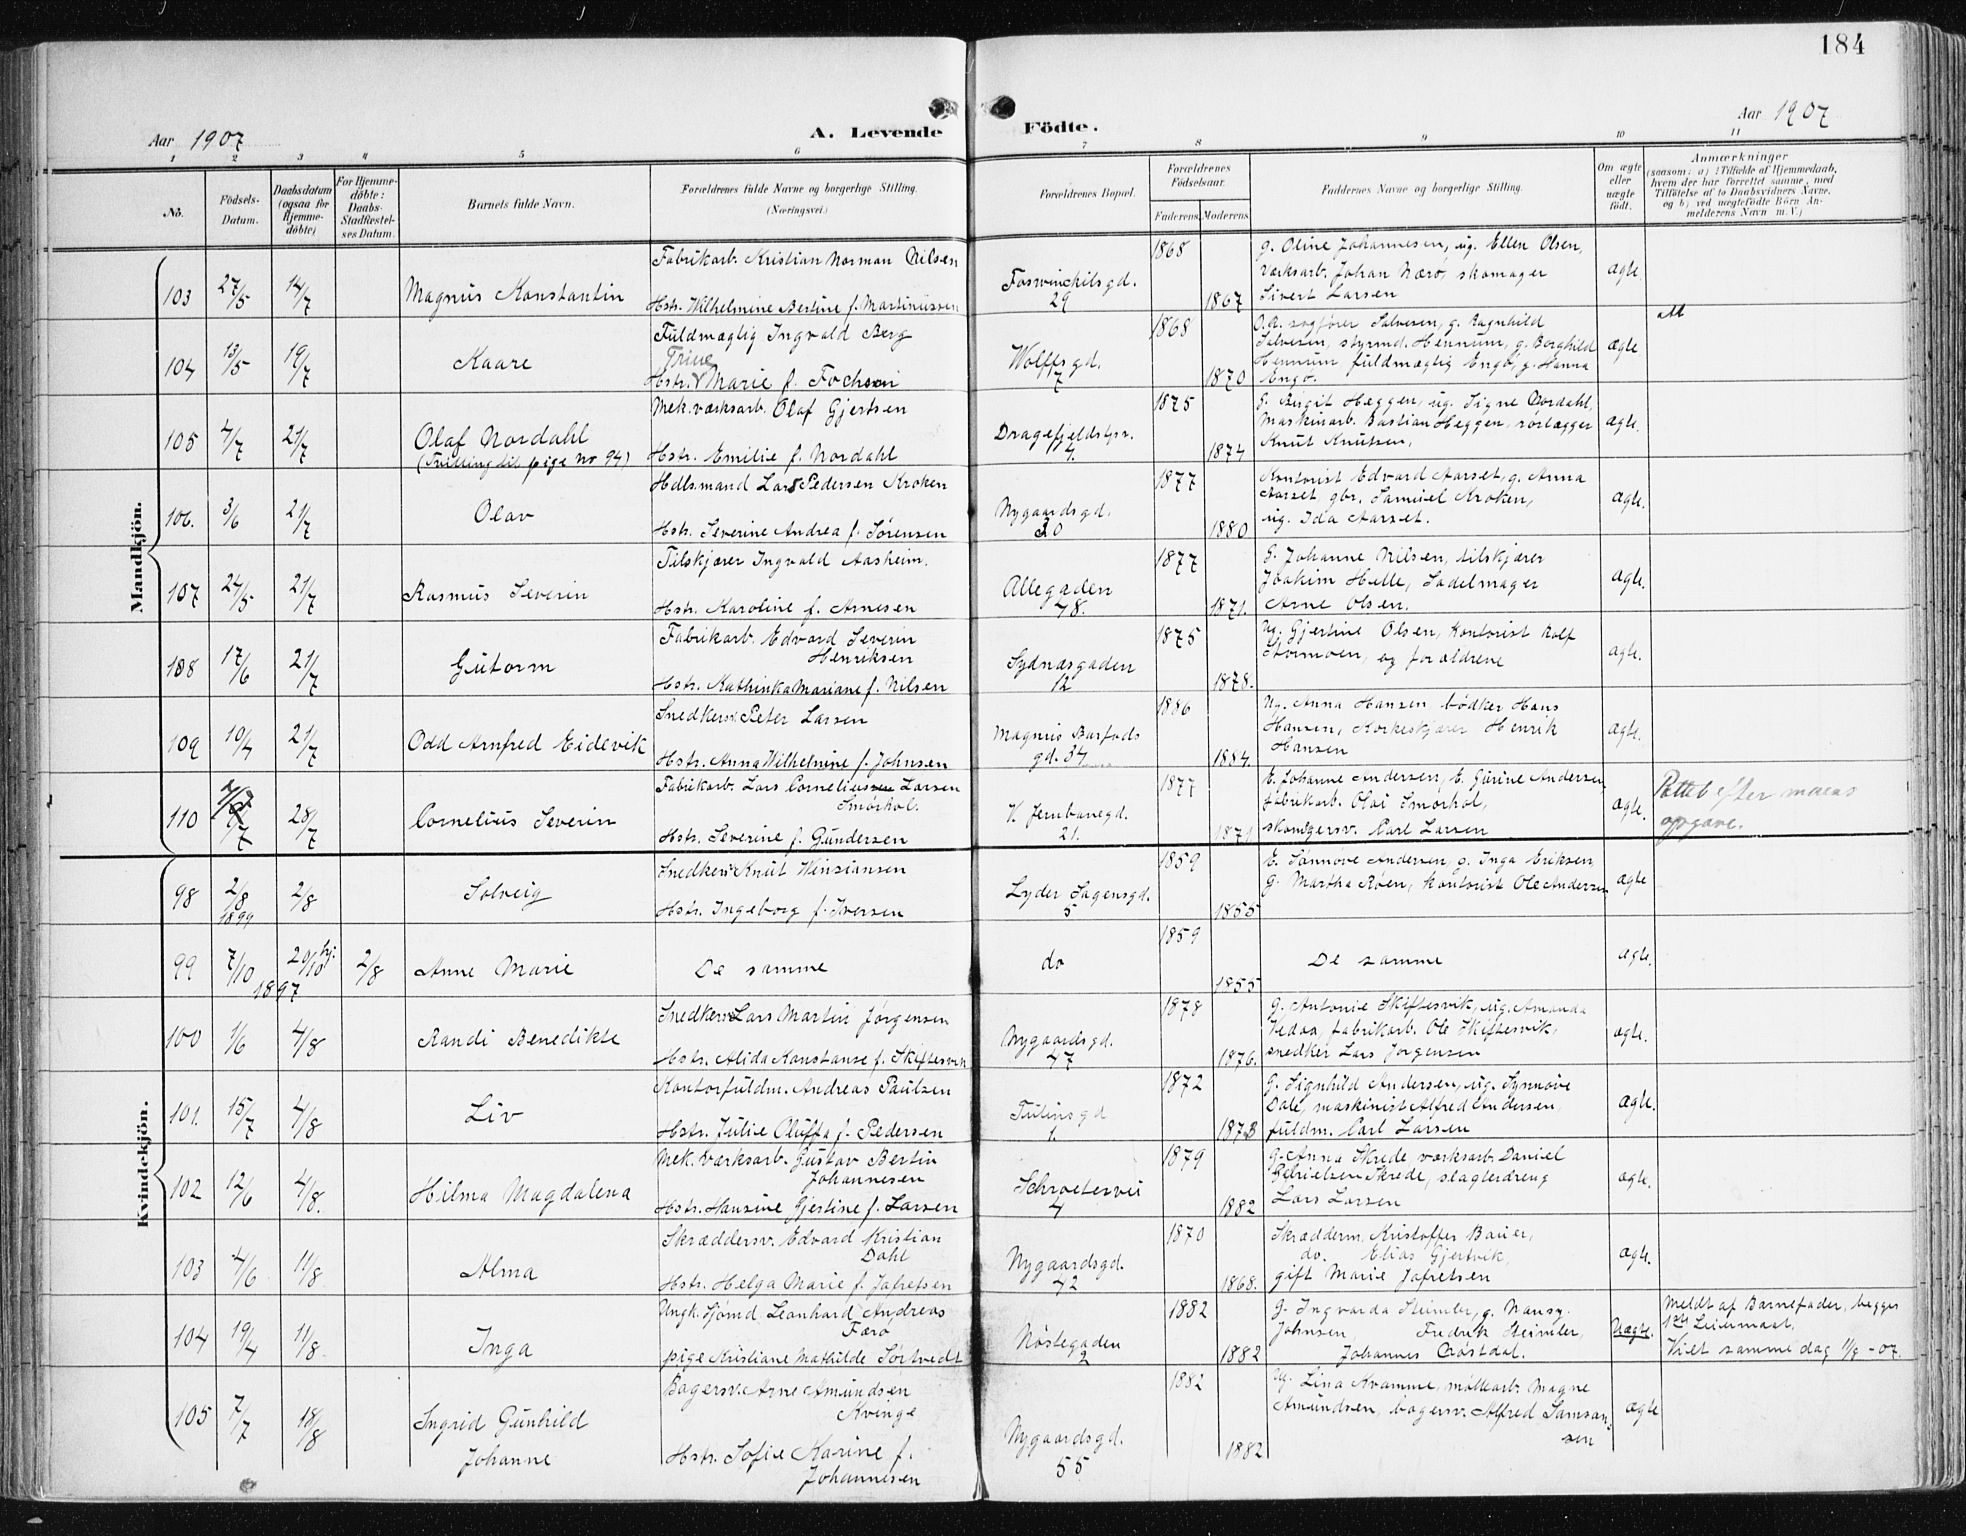 184
Aar 1907
A. Levende Födte.
Aar 1907
1 2 3 4 5 6 7 8 9 10 11
No.
Födsels-
Datum.
Daabsdatum
(ogsaa for
Hjemme-
döbte)
For Hjemme-
döbte:
Daabs-
Stadfæstel-
ses Datum.
Barnets fulde Navn.
Forældrenes fulde Navne og borgerlige Stilling.
(Næringsvei.)
Forældrenes Bopæl.
Forældrenes
Födselsaar.
Faderens Moderens
Faddernes Navne og borgerlig Stilling.
Om ægte
eller
uægte
født.
Anmærkninger
(saasom: a) i Tilfælde af Hjemmedaab,
hvem der har forrettet samme, med
Tilföielse af to Daabsvidners Navne,
og b) ved uægtefödte Börn An-
melderens Navn m. V.)
Mandkjön.
103 27/5 14/7 Magnus Konstantin
Fabrikarb. Kristian Norman Nilsen
Hstr. Wilhelmine Bertine f. Martinussen
Foswinckilsgd.
29
1868
1867
g. Oline Johannesen, ug. Ellen Olsen,
Værksarb. Johan Nærø, skomager
Sivert Larsen
ægte
104 13/5 19/7 Kaare
Fuldmægtig Ingvald Berg
Trine
Hstr. Marie f. Fochsen
Wolffsgd.
7
1868
1870
O.R. sagfører Salvesen, g. Ragnhild
Salvesen, styrmd. Hennum, g. Borghild
Hennum fuldmægtig Engø, g. Hanna
Engø.
ægte
105 4/7 21/7 Olaf Nordahl
(Tvilling til pige no 94)
Mek. værksarb. Olaf Gjertsen
Hstr. Emilie f. Nordahl
Dragefjeldstpr.
4.
1875
1874
g. Birgit Heggen, ug. Signe Nordahl,
Maskinarb. Bastian Heggen, rørlægger
Knut Knutsen,
ægte.
106. 3/6 21/7 Olav
Hdlsmand Lars Pedersen Kroken
Hstr. Severine Andrea f. Sørensen
Nygaardsgd.
30
1877
1880
Kontorist Edvard Aarset, g. Anna
Aarset gbr. Samuel Kroken,
ug. Ida Aarset.
ægte.
107 24/5 21/7 Rasmus Severin
Tilskjærer Ingvald Aasheim.
Hstr. Karoline f. Arnesen
Allegaden
48.
1877
1871.
G. Johanne Nilsen, tilskjærer
Joakim Helle, Sadelmager
Arne Olsen.
ægte.
108 17/6 21/7 Gutorm
Fabrikarb. Edvard Severin
Henriksen
Hstr. Kathinka Mariane f. Nilsen
Sydnæsgaden
12
1875
1878.
Ug. Gjertine Olsen, kontorist Rolf
Stormoen, og forældrene
ægte.
109 10/4 21/7 Odd Arnfred Eidevik
Snedkersv. Peter Larsen
Hstr. Anna Wilhelmine f. Johnsen
Magnus Barfods
gd. 34
1886
1884.
Ug. Anna Hansen bødker Hans
Hansen, Korkeskjærer Henrik
Hansen
ægte.
110 28/7 Cornelius Severin
Fabrikarb. Lars Cornelius Larsen
Smørhol.
Hstr. Severine f. Gundersen
K Jernbanegd.
21.
1877
1871
E. Johanne Andersen, E. Gurine Andersen
fabrikarb. Olai Smørhol,
skomgersv. Carl Larsen
ægte.
efter
opgave.
Kvindekjön.
98 2/8 2/8 Solveig
1899
Snedkersv. Knut Winsiansen
Hstr. Ingeborg f. Iversen
Lyder Sagensgd.
5
1859
1855
E. Sønnove Andersen, g. Inga Eriksen
g. Martha Røen, kontorist Ole Andersen
ægte
99 7/10 20/10 hj: 2/8 Anne Marie
1897
De samme
do
1859
1855
De samme
ægte.
100 1/6 4/8 Randi Benedikte
Snedkersv. Lars Martin Jørgensen
Hstr. Alida Konstanse f. Skiftesvik
Nygaardsgd.
47
1878
1876.
g. Antonie Skiftesvik, ug. Amanda
Vedaa, fabrikarb. Ole Skiftesvik,
snedker Lars Jørgensen
ægte.
101. 15/7 4/8 Liv
Kontorfuldm. Andreas Paulsen
Hstr. Julie Oluffa f. Pedersen
Tulinsgd
1.
1872
1873
g. Signhild Andersen, ug. Synnøve
Dale, maskinist Alfred Andersen,
fuldm. Carl Larsen
ægte.
102 12/6 4/8. Hilma Magdalena
Mek. Værksarb. Gustav Bertin
Johannesen
Hstr. Hansine Gjertine f. Larsen
Schroetersvei
4
1879
1882
g. Anna Skrede værksarb. Daniel
Gabrielsen Skrede, slagterdreng
Lars Larsen
ægte.
103 4/6 11/8 Alma
Skræddersv. Edvard Kristian
Dahl
Hstr. Helga Marie f. Jafretsen
Nygaardsgd.
42
1870
1868.
Skrædderm. Kristoffer Bauer,
do. Elias Gjertvik,
gift Marie Jafretsen
ægte.
104 19/4 11/8 Inga
Ungk. Sjømd Leonhard Andreas
Færø
pige Kristiane Mathilde Sørtvedt
Nöstegaden
2
1882
1882
g. Ingvarda Steimler, g. Nansy
Johnsen, Fredrik Steimler,
Johannes Røstdal.
Uægte.
Meldt af Barnefader, begges
1ste Leiermaal.
Viet samme dag 11/8 - 07.
105 7/7 18/8 Ingrid Gunhild
Johanne
Bagersv. Arne Amundsen
Kvinge
Hstr. Sofie Karine f.
Johannesen
Nygaardsgd.
55
1882
1882
Ug. Lina Kvamme, møllearb. Magne
Amundsen, bagersv. Alfred Samson-
sen
ægte